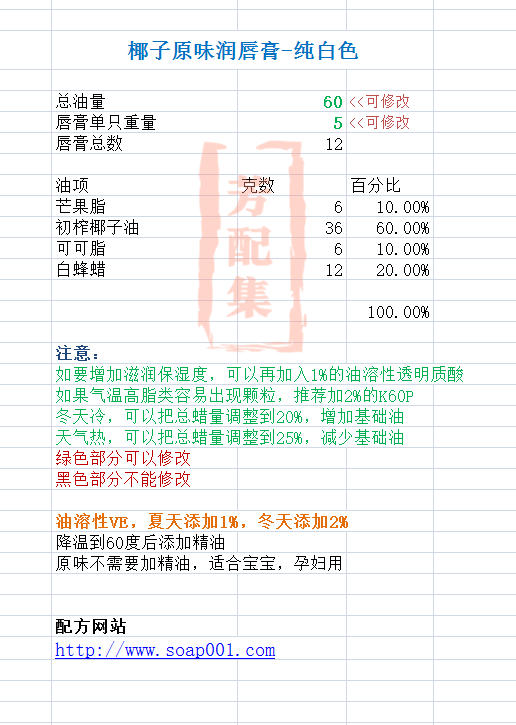 椰子原味润唇膏-纯白色
总油量 60 <<可修改
唇膏单只重量 5 <<可修改
唇膏总数 12
油项 克数 百分比
芒果脂 6 10.00%
初榨椰子油 36 60.00%
可可脂 6 10.00%
白蜂蜡 12 20.00%
100.00%
芳配集
注意：
如要增加滋润保湿度，可以再加入1%的油溶性透明质酸
如果气温高脂类容易出现颗粒，推荐加2%的K60P
冬天冷，可以把总蜡量调整到20%，增加基础油
天气热，可以把总蜡量调整到25%，减少基础油
绿色部分可以修改
黑色部分不能修改
油溶性VE，夏天添加1%，冬天添加2%
降温到60度后添加精油
原味不需要加精油，适合宝宝，孕妇用
配方网站
http://www.soap001.com